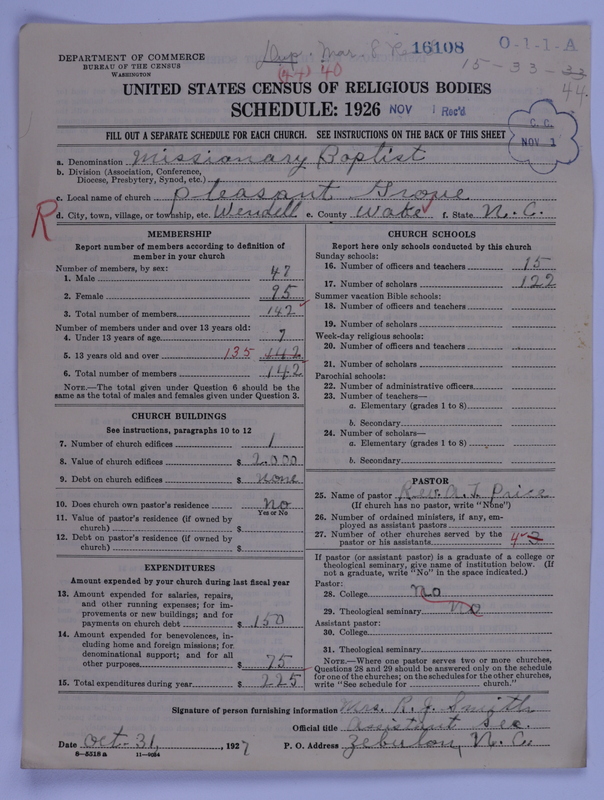 DEPARTMENT OF COMMERCE
BUREAU OF THE CENSUS
WASHINGTON
Dup. Mar. 8
(4+) 40
16108
0-1-1-A
15-33-33
44.
UNITED STATES CENSUS OF RELIGIOUS BODIES
SCHEDULE: 1926 NOV 1 Rec'd
C. C.
NOV 1
FILL OUT A SEPARATE SCHEDULE FOR EACH CHURCH. SEE INSTRUCTIONS ON THE BACK OF THIS SHEET
a. Denomination Missionary Baptist
b. Division (Association, Conference, Diocese, Presbytery, Synod, etc.)
c. Local name of church Pleasant Grove
R
d. City, town, village, or township, etc. Wendell e. County Wake f. State N. C.
MEMBERSHIP
Report number of members according to definition of member in your church
Number of members, by sex:
1. Male 47
2. Female 95
3. Total number of members 142
Number of members under and over 13 years old:
4. Under 13 years of age 7
5. 13 years old and over 135 142
6. Total number of members 142
NOTE.—The total given under Question 6 should be the same as the total of males and females given under Question 3.
CHURCH BUILDINGS
See instructions, paragraphs 10 to 12
7. Number of church edifices 1
8. Value of church edifices $ 2000
9. Debt on church edifices $ none
10. Does church own pastor's residence No
Yes or No
11. Value of pastor's residence (if owned by church) $
12. Debt on pastor's residence (if owned by church) $
EXPENDITURES
Amount expended by your church during last fiscal year
13. Amount expended for salaries, repairs, and other running expenses; for improvements or new buildings; and for payments on church debt $ 150
14. Amount expended for benevolences, including home and foreign missions; for denominational support; and for all other purposes $ 75
15. Total expenditures during year $ 225
CHURCH SCHOOLS
Report here only schools conducted by this church
Sunday schools:
16. Number of officers and teachers 15
17. Number of scholars 122
Summer vacation Bible schools:
18. Number of officers and teachers
19. Number of scholars
Week-day religious schools:
20. Number of officers and teachers
21. Number of scholars
Parochial schools:
22. Number of administrative officers
23. Number of teachers—
a. Elementary (grades 1 to 8)
b. Secondary
24. Number of scholars—
a. Elementary (grades 1 to 8)
b. Secondary
PASTOR
25. Name of pastor Rev. A. T. Price
(If church has no pastor, write "None")
26. Number of ordained ministers, if any, employed as assistant pastors
27. Number of other churches served by the pastor or his assistants 4
If pastor (or assistant pastor) is a graduate of a college or theological seminary, give name of institution below. (If not a graduate, write "No" in the space if indicated.)
Pastor:
28. College No
29. Theological seminary No
Assistant pastor:
30. College
31. Theological seminary
NOTE.—Where one pastor serves two or more churches, Questions 28 and 29 should be answered only on the schedule for one of the churches; on the schedules for the other churches, write "See schedule for church."
Signature of person furnishing information Mrs. R. J. Smith
Official title Assistant Sec.
Date Oct. 31, 1927 P. O. Address Zebulon, N. C.
8—5518a 11—9034